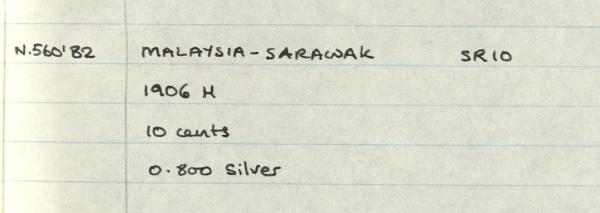 N.560'82 MALAYSIA - SARAWAK SR10
1906 H
10 cents
0.800 Silver